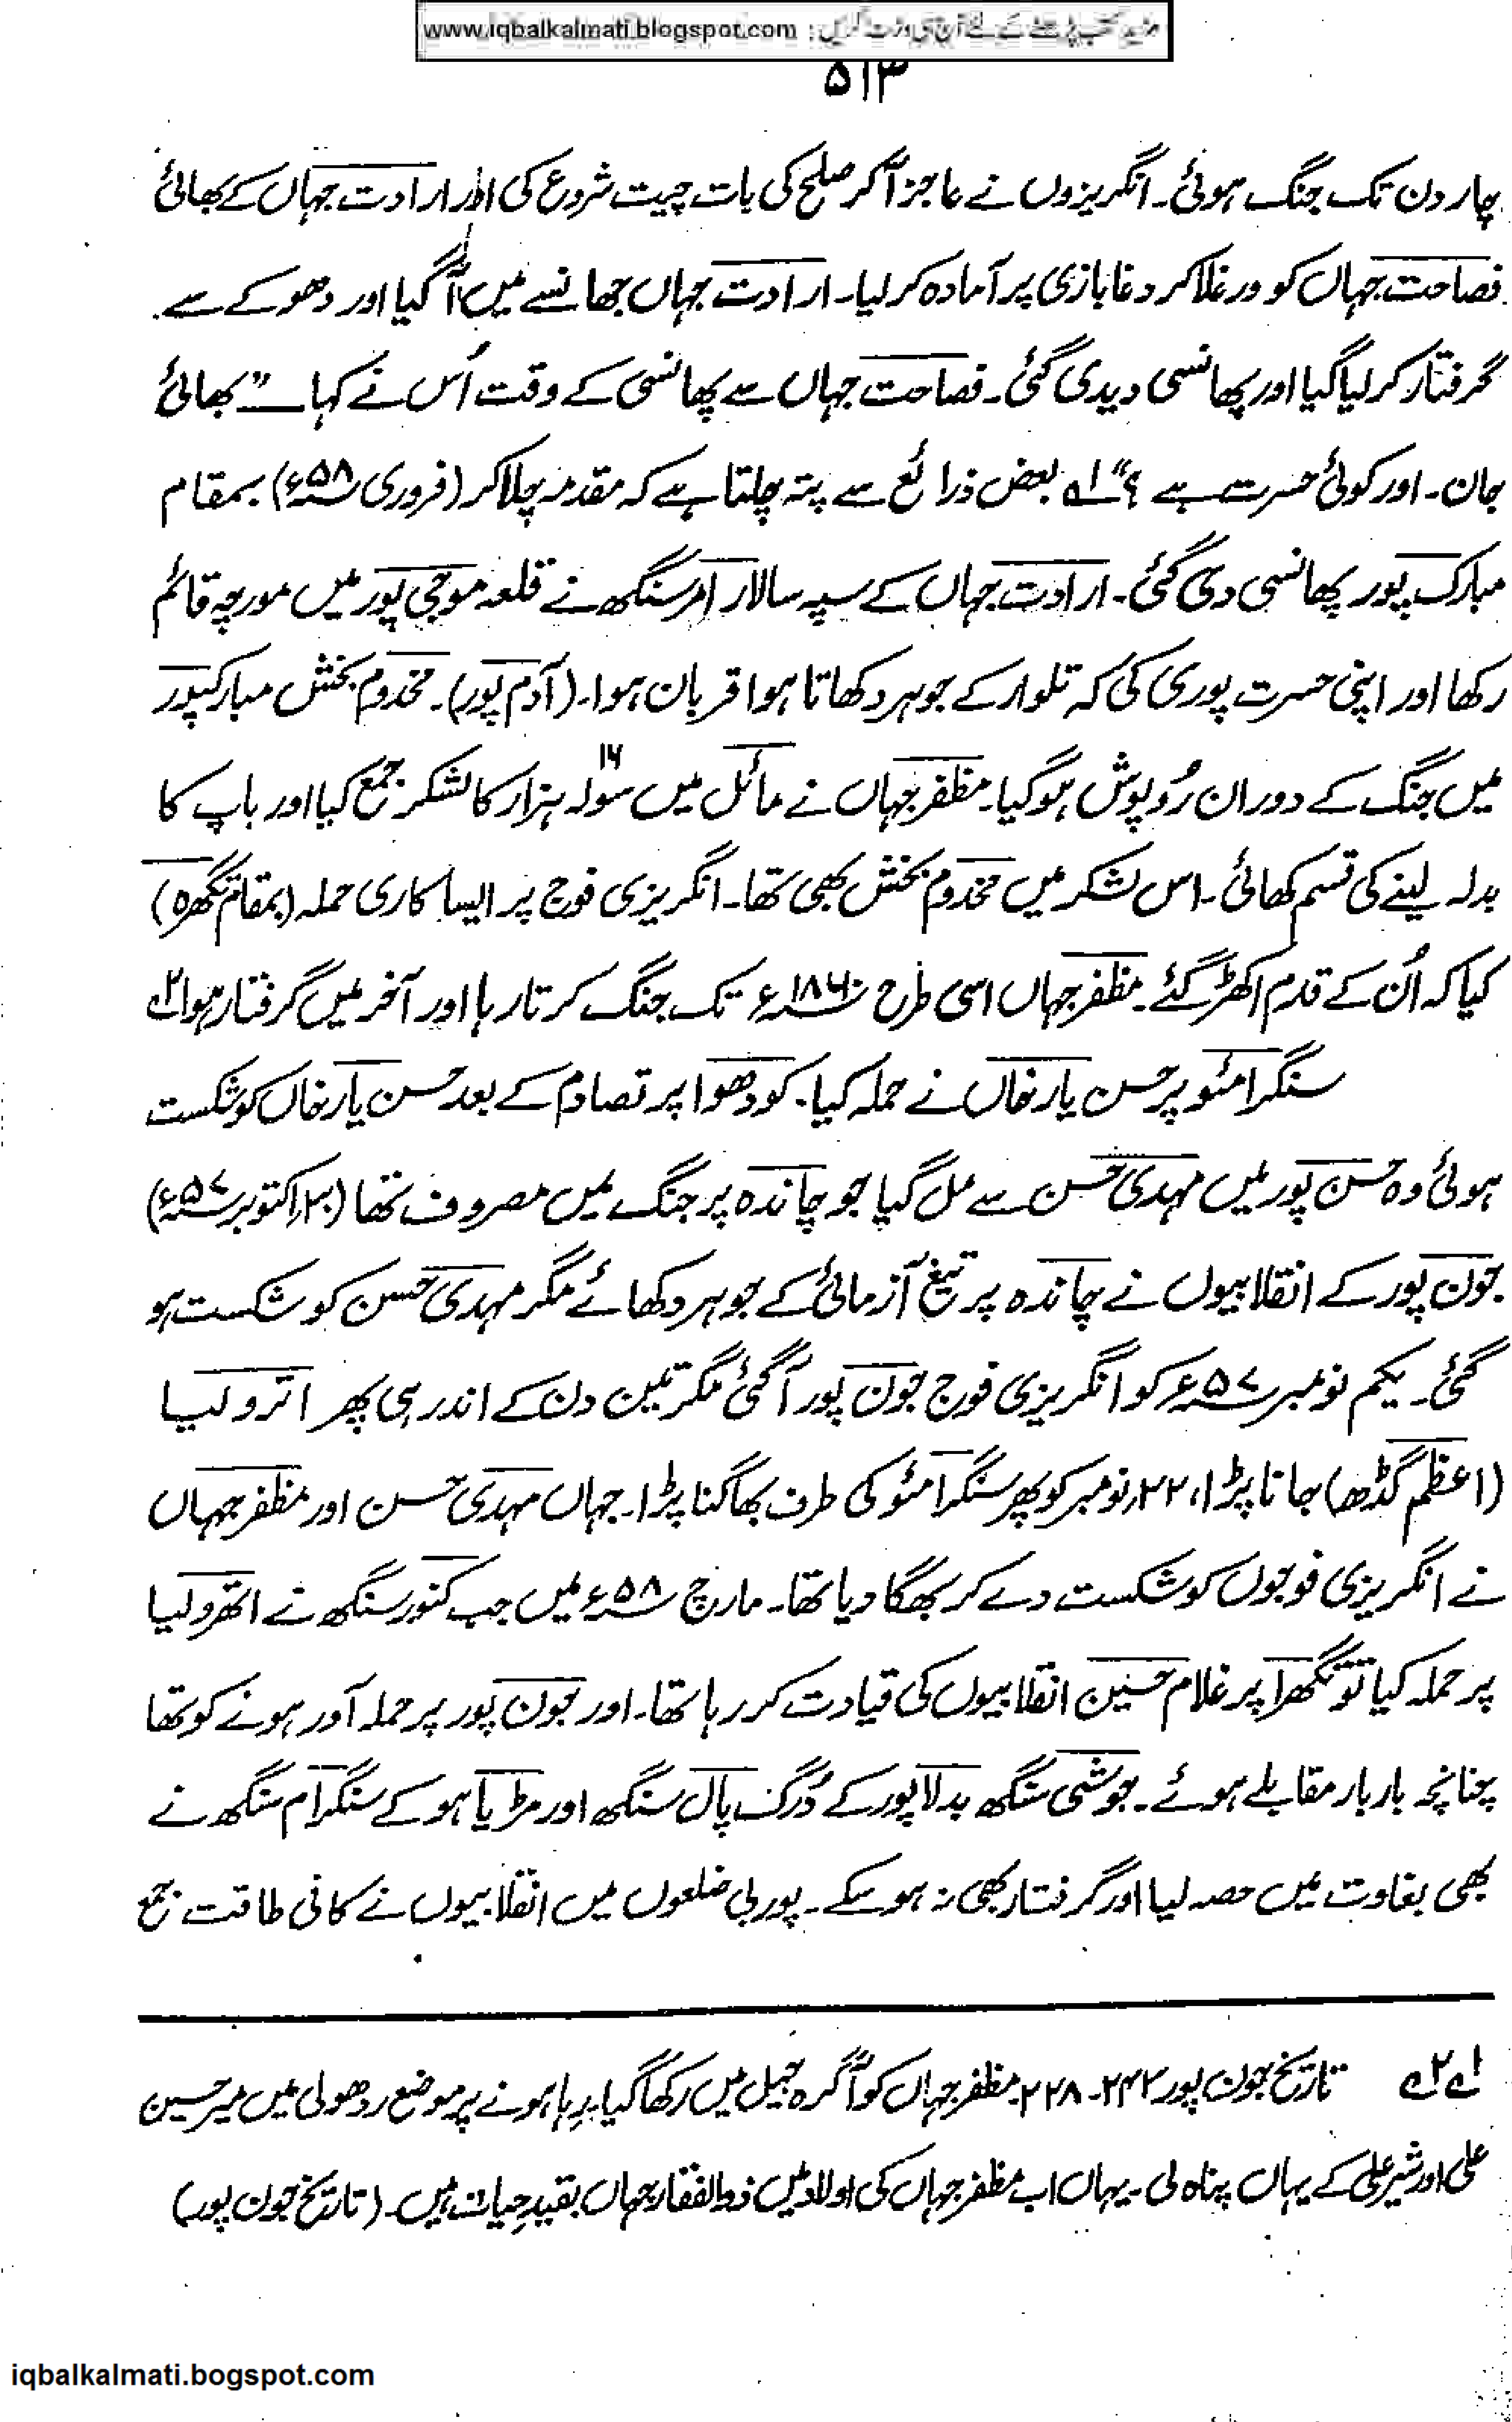 مزید کتب پڑھنے کے لئے آج ہی وزٹ کریں : www.iqbalkalmati.blogspot.com
۵۱۳
چار دن تک جنگ ہوئی۔ انگریزوں نے عاجز آکر صلح کی بات چیت شروع کی اور ارادت جہاں کے بھائی
فصاحت جہاں کو ورغلا کر دغا بازی پر آمادہ کر لیا۔ ارادت جہاں جھانسے میں آگیا اور دھوکے سے
گرفتار کر لیا گیا اور پھانسی دیدی گئی۔ فصاحت جہاں سے پھانسی کے وقت اُس نے کہا — ”بھائی
جان۔ اور کوئی حسرت ہے ؟“ ۱؎ بعض ذرائع سے پتہ چلتا ہے کہ مقدمہ چلا کر (فروری ۵۸ء) بمقام
مبارک پور پھانسی دی گئی۔ ارادت جہاں کے سپہ سالار امر سنگھ نے قلعہ موجی پور میں مورچہ قائم
رکھا اور اپنی حسرت پوری کی کہ تلوار کے جوہر دکھاتا ہوا قربان ہوا۔ (آدم پور)۔ مخدوم بخش مبارکپور
میں جنگ کے دوران رُوپوش ہوگیا۔ مظفر جہاں نے مائل میں سولہ ۱۶ ہزار کا لشکر جمع کیا اور باپ کا
بدلہ لینے کی قسم کھائی۔ اس لشکر میں مخدوم بخش بھی تھا۔ انگریزی فوج پر ایسا کاری حملہ (بمقام تگھرہ)
کیا کہ اُن کے قدم اکھڑ گئے۔ مظفر جہاں اسی طرح ۱۸۶۰ء تک جنگ کرتا رہا اور آخر میں گرفتار ہوا ۲؎
سنگرامئو پر حسن یار خاں نے حملہ کیا۔ کودھوا پر تصادم کے بعد حسن یار خاں کو شکست
ہوئی وہ حسن پور میں مہدی حسن سے مل گیا جو چاندہ پر جنگ میں مصروف تھا (۳۰؍اکتوبر ۵۷ء)
جون پور کے انقلابیوں نے چاندہ پر تیغ آزمائی کے جوہر دکھائے مگر مہدی حسن کو شکست ہو
گئی۔ یکم نومبر ۵۷ء کو انگریزی فوج جون پور آگئی مگر تین دن کے اندر ہی پھر اترولیا
(اعظم گڈھ) جانا پڑا، ۲۲؍نومبر کو پھر سنگرامئو کی طرف بھاگنا پڑا۔ جہاں مہدی حسن اور مظفر جہاں
نے انگریزی فوجوں کو شکست دے کر بھگا دیا تھا۔ مارچ ۵۸ء میں جب کنور سنگھ نے اتھرولیا
پر حملہ کیا تو تگھرا پر غلام حسین انقلابیوں کی قیادت کر رہا تھا۔ اور جون پور پر حملہ آور ہونے کو تھا
چنانچہ بار بار مقابلے ہوئے۔ جوشی سنگھ بدلاپور کے دُرگ پال سنگھ اور مڑیاہو کے سنگرام سنگھ نے
بھی بغاوت میں حصہ لیا اور گرفتار بھی نہ ہو سکے۔ پوربی ضلعوں میں انقلابیوں نے کافی طاقت جمع
۱؎ ۲؎ تاریخ جون پور ۲۴۲۔۲۲۸۔ مظفر جہاں کو آگرہ جیل میں رکھا گیا۔ رہا ہونے پر موضع ردھولی میں میر حسین
علی اور شیر علی کے یہاں پناہ لی۔ یہاں اب مظفر جہاں کی اولاد میں ذوالفقار جہاں بقیدِ حیات ہیں۔ (تاریخ جون پور)
iqbalkalmati.bogspot.com